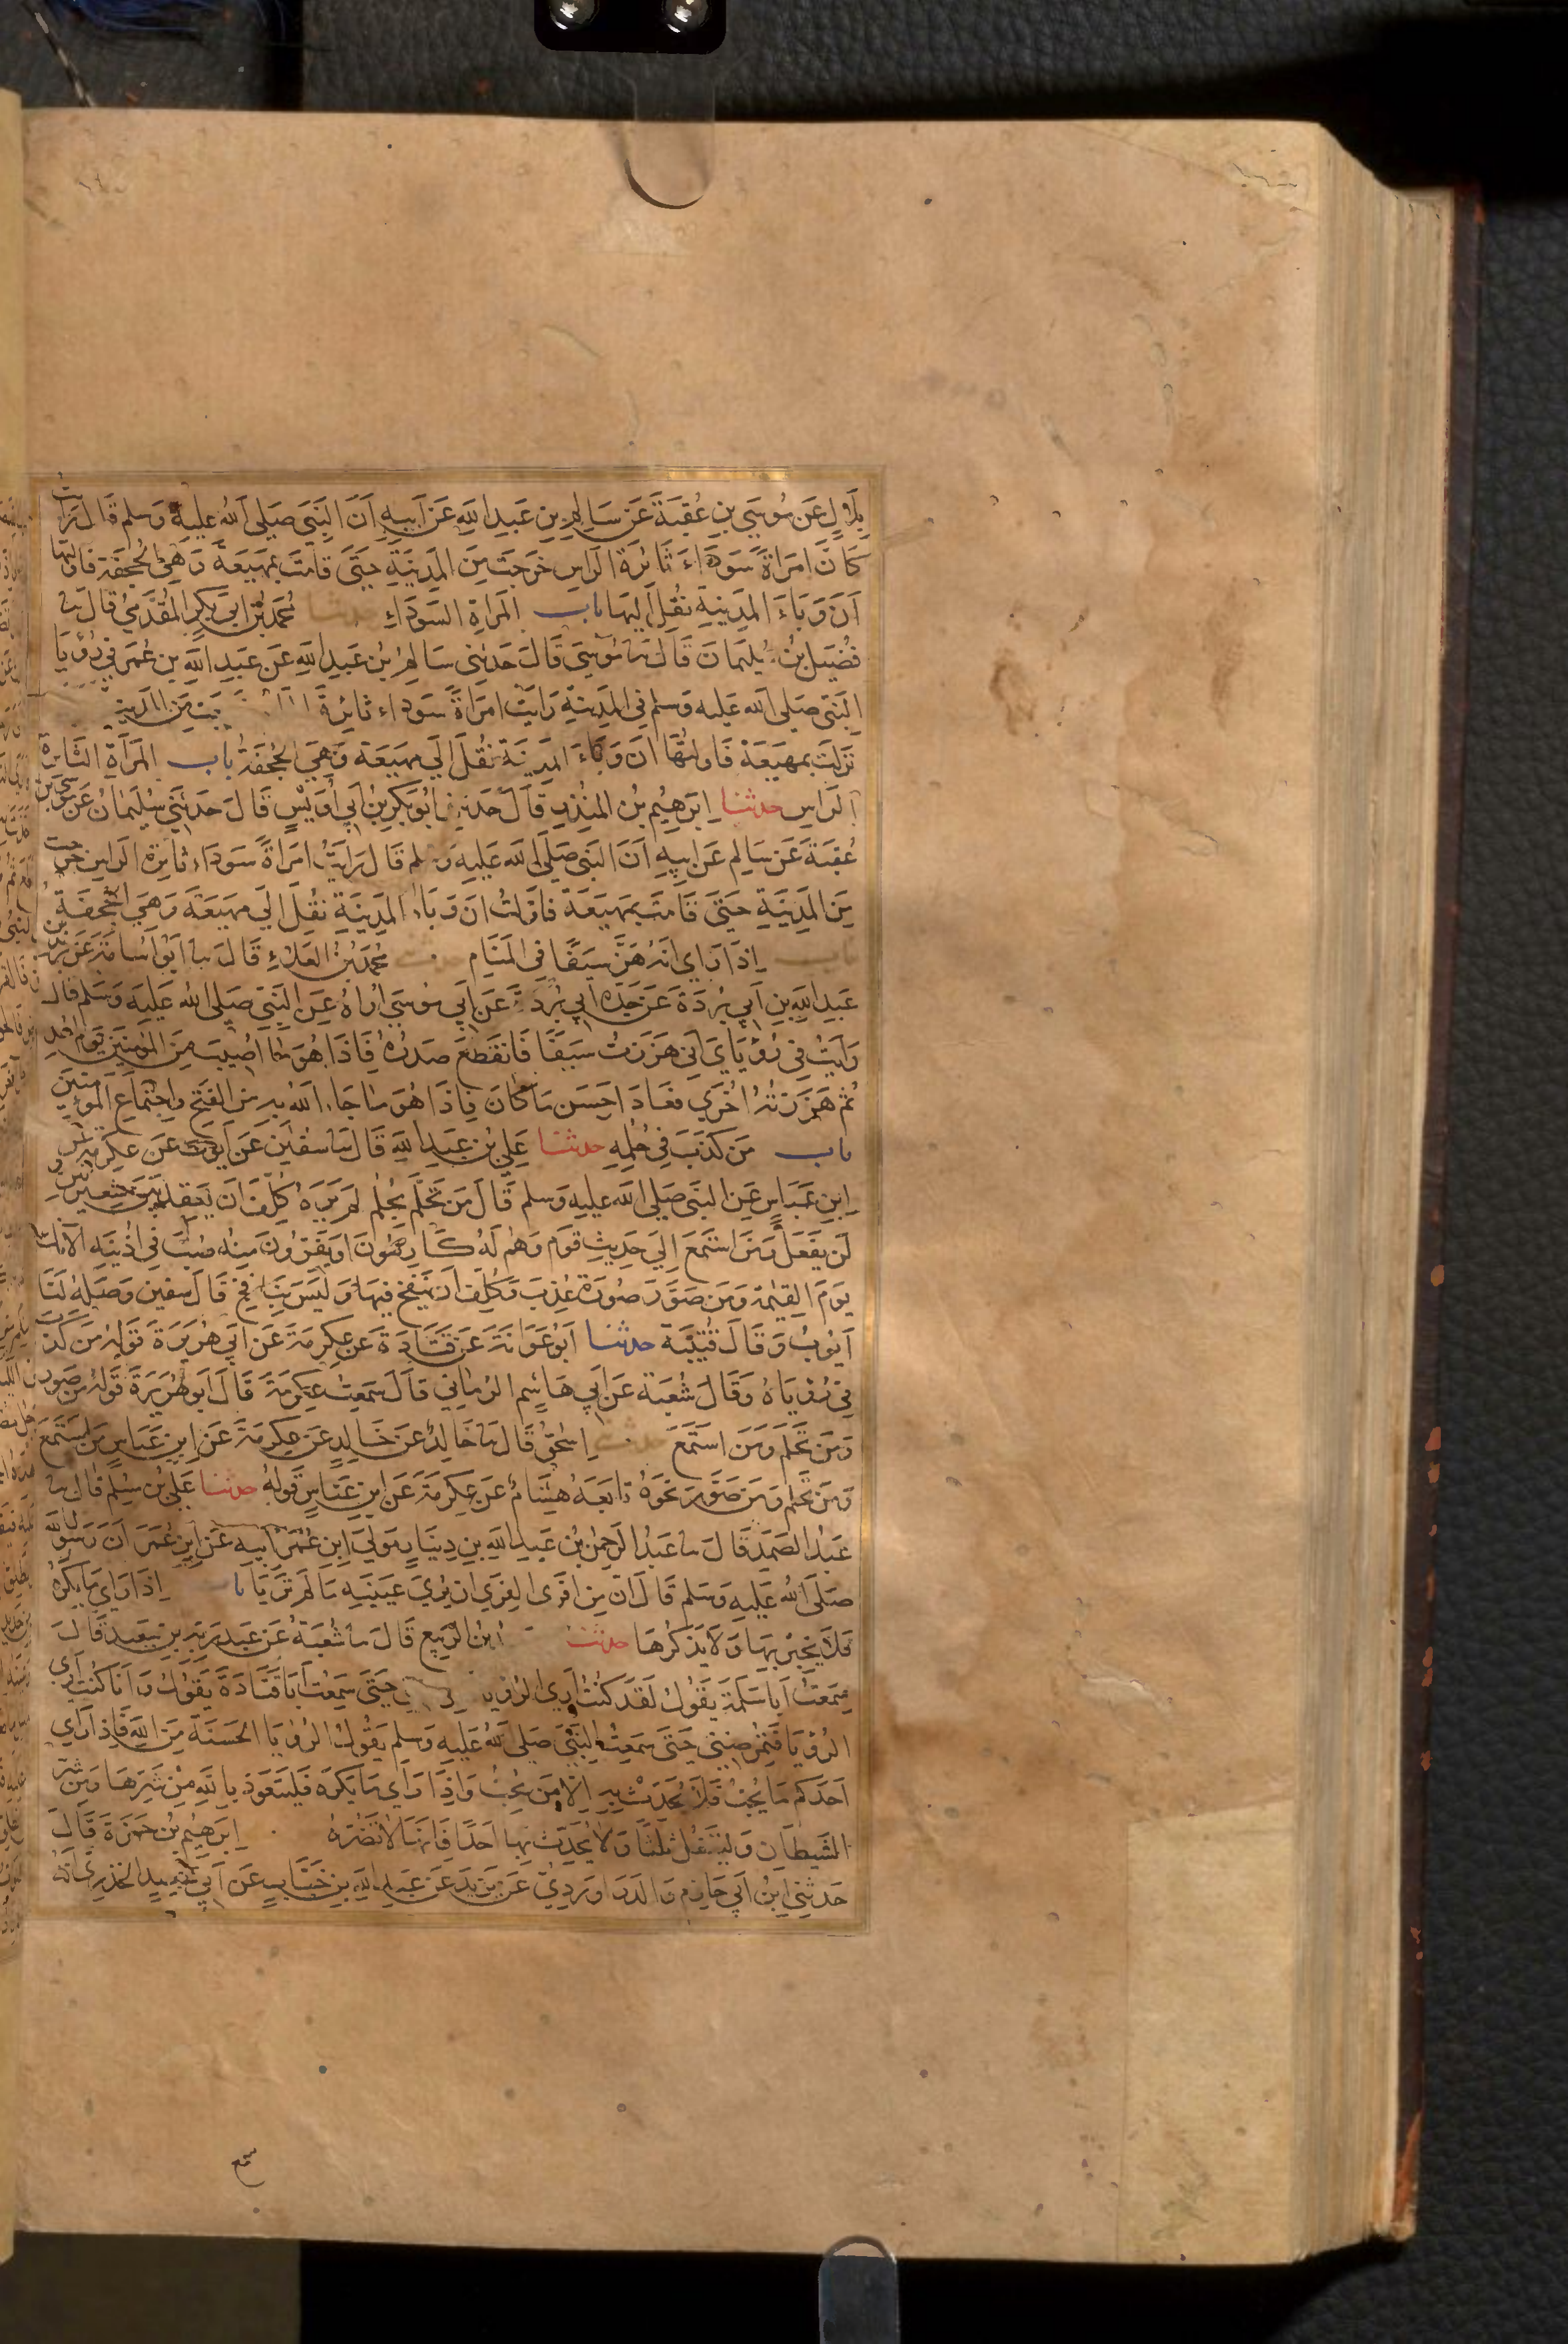 بلال عن موسي بن عقبة عن سالم بن عبد الله عن ابيه ان النبي صلي الله عليه وسلم قال رايت
كان امراة سوداء ثائرة الراس خرجت من المدينة حتى قامت بمهيعة وهي الجحفة فاولتها
ان وباء المدينة نقل اليها باب المراة السوداء حدثنا محمد بن ابي بكر المقدمي قال سا
فضيل بن سليمان قال سا موسي قال حدثني سالم بن عبد الله عن عبد الله بن عمر في رؤيا
النبي صلي الله عليه وسلم في المدينة رايت امراة سوداء ثائرة من المدينة
نزلت بمهيعة فاولتها ان وباء المدينة نقل الي مهيعة وهي الجحفة باب المراة الثائرة
الراس حدثنا ابرهيم بن المنذر قال حدثني ابو بكر بن ابي اويس قال حدثني سليمان عن موسي بن
عقبة عن سالم عن ابيه ان النبي صلي الله عليه وسلم قال رايت امراة سوداء ثائرة الراس خرجت
من المدينة حتى قامت بمهيعة فاولت ان وباء المدينة نقل الي مهيعة وهي الجحفة
باب اذا راي انه هز سيفا في المنام محمد بن العلاء قال سا ابو اسامة عن بريد بن
عبد الله بن ابي بردة عن جده ابي بردة عن ابي موسي اراه عن النبي صلي الله عليه وسلم قال
رايت في رؤياي اني هززت سيفا فانقطع صدره فاذا هو ما اصيب من المؤمنين يوم احد
ثم هززته اخري فعاد احسن ما كان فاذا هو ما جاء الله به من الفتح واجتماع المؤمنين
باب من كذب في حلمه حدثنا علي بن عبد الله قال سا سفين عن ايوب عن عكرمة عن
ابن عباس عن النبي صلي الله عليه وسلم قال من تحلم بحلم لم يره كلف ان يعقد بين شعيرتين و
لن يفعل ومن استمع الي حديث قوم وهم له كارهون او يفرون منه صب في اذنيه الانك
يوم القيمة ومن صور صورة عذب وكلف ان ينفخ فيها وليس بنافخ قال سفين وصله لنا
ايوب وقال قتيبة حدثنا ابو عوانة عن قتادة عن عكرمة عن ابي هريرة قوله من كذب
في رؤياه وقال شعبة عن ابي هاشم الرماني قال سمعت عكرمة قال ابو هريرة قوله من صور
ومن تحلم ومن استمع حدثنا اسحق قال سا خالد عن خالد عن عكرمة عن ابن عباس من استمع
ومن تحلم ومن صور نحوه تابعه هشام عن عكرمة عن ابن عباس قوله حدثنا علي بن مسلم قال سا
عبد الصمد قال سا عبد الرحمن بن عبد الله بن دينار مولي ابن عمر عن ابيه عن ابن عمر ان رسول الله
صلي الله عليه وسلم قال ان من افرى الفري ان يري عينيه ما لم تريا باب اذا راي ما يكره
فلا يخبر بها ولا يذكرها حدثنا ابن الربيع قال سا شعبة عن عبد ربه بن سعيد قال
سمعت ابا سلمة يقول لقد كنت اري الرؤيا حتى سمعت ابا قتادة يقول وانا كنت اري
الرؤيا فتمرضني حتى سمعت النبي صلي الله عليه وسلم يقول الرؤيا الحسنة من الله فاذا راي
احدكم ما يحب فلا يحدث به الا من يحب واذا راي ما يكره فليتعوذ بالله من شرها ومن شر
الشيطان وليتفل ثلثا ولا يحدث بها احدا فانها لا تضره ابرهيم بن حمزة قال
حدثني ابن ابي حازم والدراوردي عن يزيد عن عبد الله بن خباب عن ابي سعيد الخدري انه